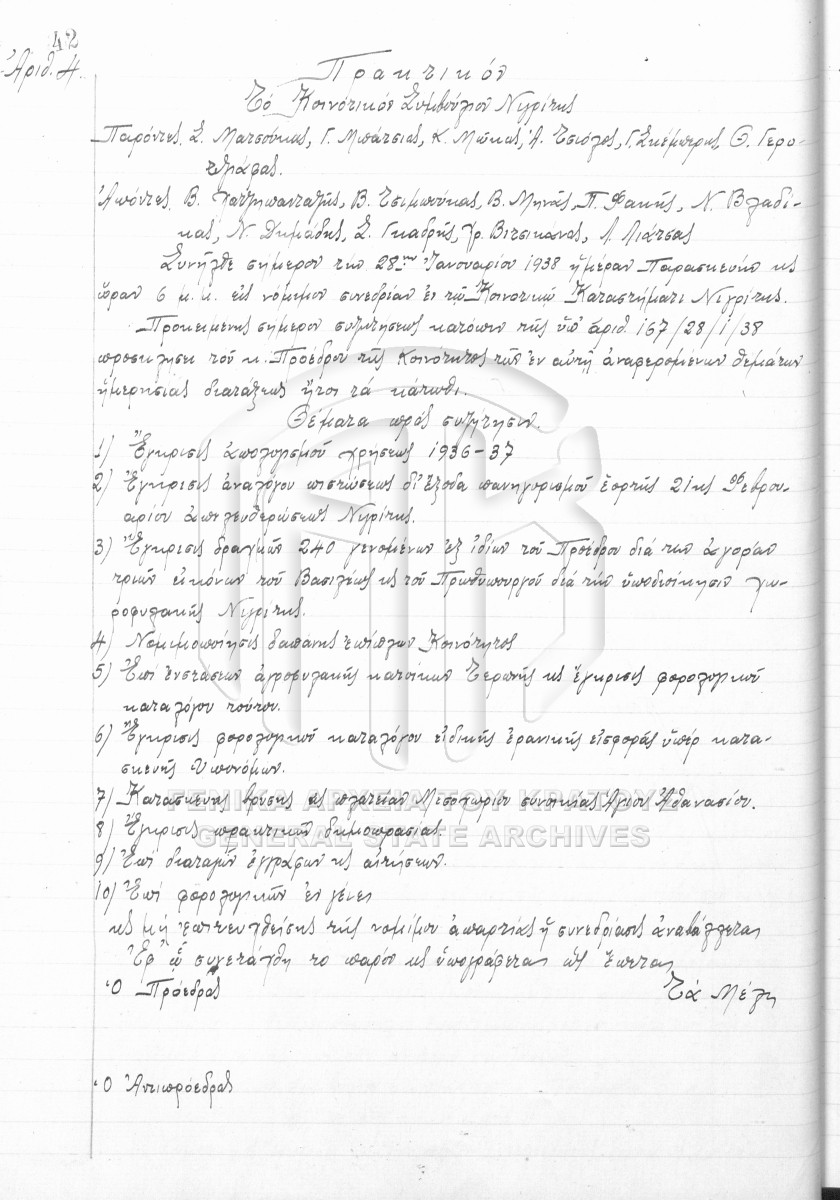 42
Ἀριθ. 4.
Πρακτικόν
Τό Κοινοτικόν Συμβούλιον Νιγρίτης
Παρόντες. Σ. Ματσούκας, Γ. Μπάτσιας, Κ. Μώκας, Ἀ. Τσιόγος, Γ. Σκέμπρης, Θ. Γερο-
τζιάφας.
Ἀπόντες. Β. Χατζηπανταζῆς, Β. Τσιμπούκας, Β. Μηνᾶς, Π. Φακῆς, Ν. Βλαδί-
κας, Ν. Δημάδης, Σ. Γκαδρής, Χρ. Βιτσικάνος, Λ. Λιάτσας
Συνῆλθε σήμερον τήν 28ην Ἰανουαρίου 1938 ἡμέραν Παρασκευήν κς
ὥραν 6 μ.μ. εἰς νόμιμον συνεδρίαν ἐν τῷ Κοινοτικῷ Καταστήματι Νιγρίτης.
Προκειμένης σήμερον συζητήσεως κατόπιν τῆς ὑπ' ἀριθ. 167/28/1/38
προσκλήσει τοῦ κ. Προέδρου τῆς Κοινότητος τῶν ἐν αὐτῇ ἀναφερομένων θεμάτων
ἡμερησίας διατάξεως ἤτοι τά κάτωθι.
Θέματα πρός συζήτησιν.
1) Ἔγκρισις ἀπολογισμοῦ χρήσεως 1936-37
2) Ἔγκρισις ἀναλόγου πιστώσεως δι' ἔξοδα πανηγυρισμοῦ ἑορτῆς 21ης Φεβρου-
αρίου ἀπελευθερώσεως Νιγρίτης.
3) Ἔγκρισις δραχμῶν 240 γενομένων ἐξ ἰδίων τοῦ Προέδρου διά τήν ἀγοράν
τριῶν εἰκόνων τοῦ Βασιλέως κς τοῦ Πρωθυπουργοῦ διά τήν ὑποδιοίκησιν χω-
ροφυλακῆς Νιγρίτης.
4) Νομιμοποίησις δαπάνης ἐπίπλων Κοινότητος
5) Ἐπί ἐνστάσεων ἀγροφυλακῆς κατοίκων Τερπνῆς κς ἔγκρισις φορολογικοῦ
καταλόγου τούτου.
6) Ἔγκρισις φορολογικοῦ καταλόγου εἰδικῆς ἐρανικῆς εἰσφορᾶς ὑπέρ κατα-
σκευῆς Ὑπονόμων.
7) Κατασκευῆς βρύσης εἰς πλατεῖαν Μεσοχωρίου συνοικίας Ἁγίου Ἀθανασίου.
8) Ἔγκρισις πρακτικῶν δημοπρασίας.
9) Ἐπί διαταγῶν ἐγγράφων κς αἰτήσεων.
10) Ἐπί φορολογικῶν ἐν γένει
κς μή ἐπιτευχθείσης τῆς νομίμου ἀπαρτίας ἡ συνεδρίασις ἀναβάλλεται
Ἐφ' ᾧ συνετάχθη το παρόν κς ὑπογράφεται ὡς ἕπεται
Ὁ Πρόεδρος
Τά Μέλη
Ὁ Ἀντιπρόεδρος
ΓΕΝΙΚΑ ΑΡΧΕΙΑ ΤΟΥ ΚΡΑΤΟΥΣ
GENERAL STATE ARCHIVES